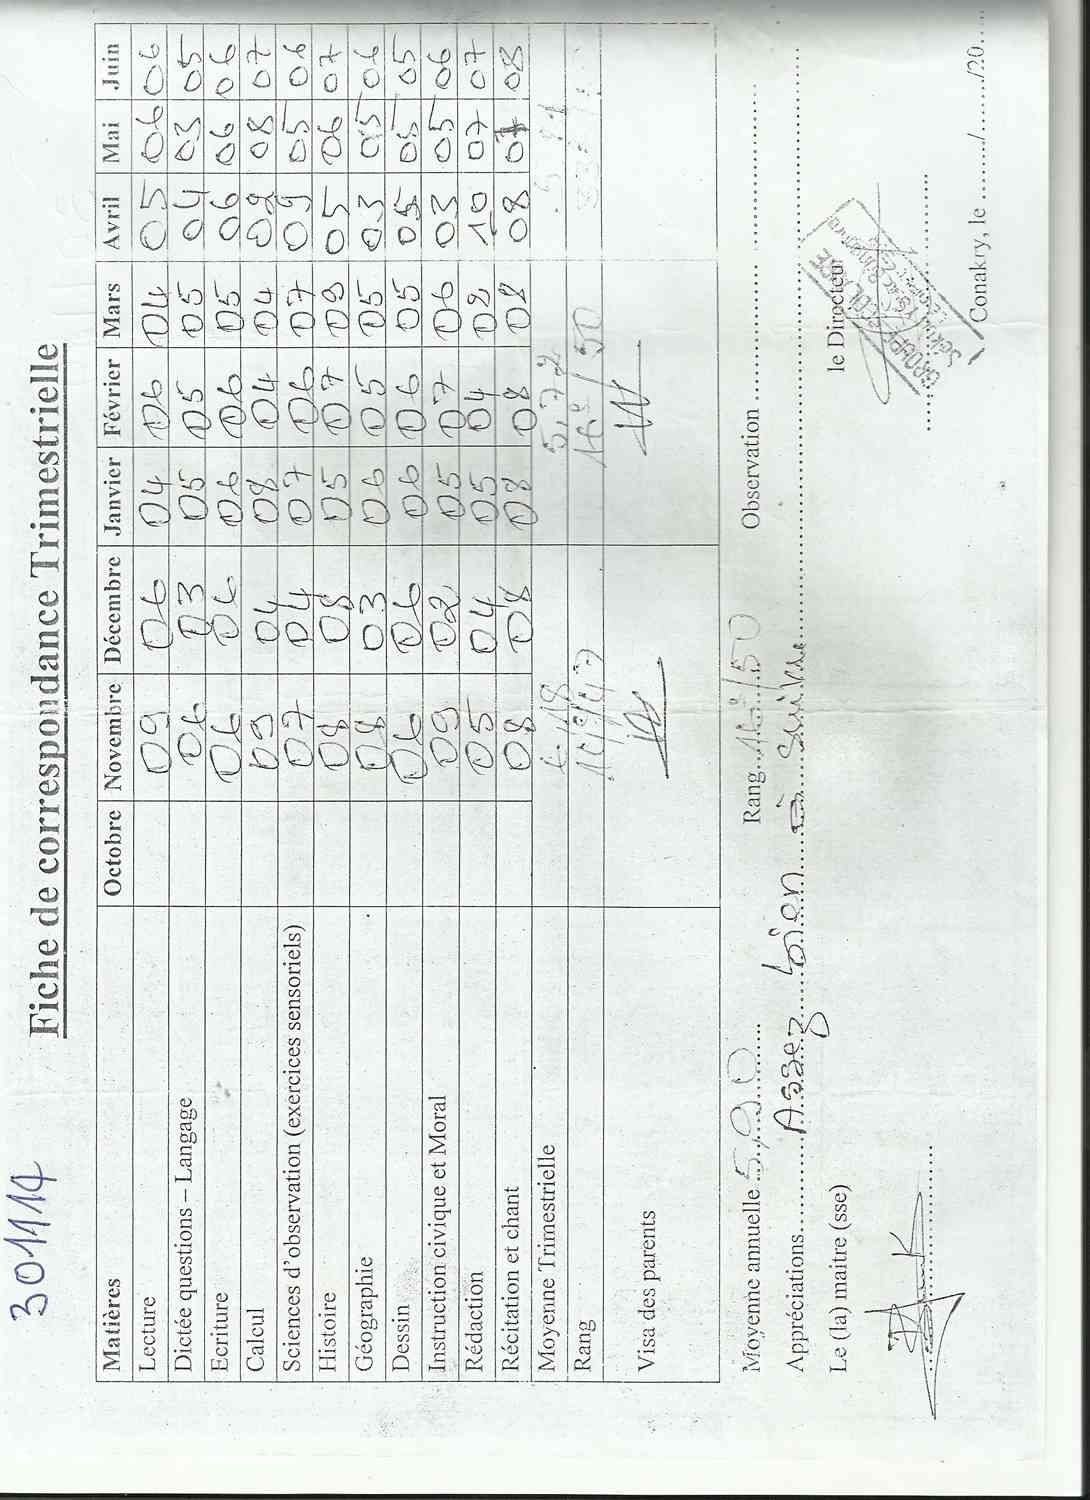 301114
Fiche de correspondance Trimestrielle
Matières Octobre Novembre Décembre Janvier Février Mars Avril Mai Juin
Lecture 09 06 04 06 04 05 06 06
Dictée questions – Langage 06 03 05 05 05 04 03 05
Ecriture 06 06 06 06 05 06 06 06
Calcul 09 04 08 04 04 08 08 07
Sciences d'observation (exercices sensoriels) 07 04 07 06 07 09 05 06
Histoire 08 08 05 07 09 05 06 07
Géographie 08 03 06 05 05 03 05 06
Dessin 06 06 06 06 05 05 05 05
Instruction civique et Moral 09 02 05 07 06 03 05 06
Rédaction 05 04 05 04 08 10 07 07
Récitation et chant 08 08 08 08 08 08 07 08
Moyenne Trimestrielle 6,18 5,72
Rang 16e/50
Visa des parents
Moyenne annuelle 5,90 Rang 16e/50 Observation
Appréciations Assez bien à suivre
Le (la) maitre (sse) le Directeur
GROUPE SCOLAIRE
Conakry, le ......../......../20....